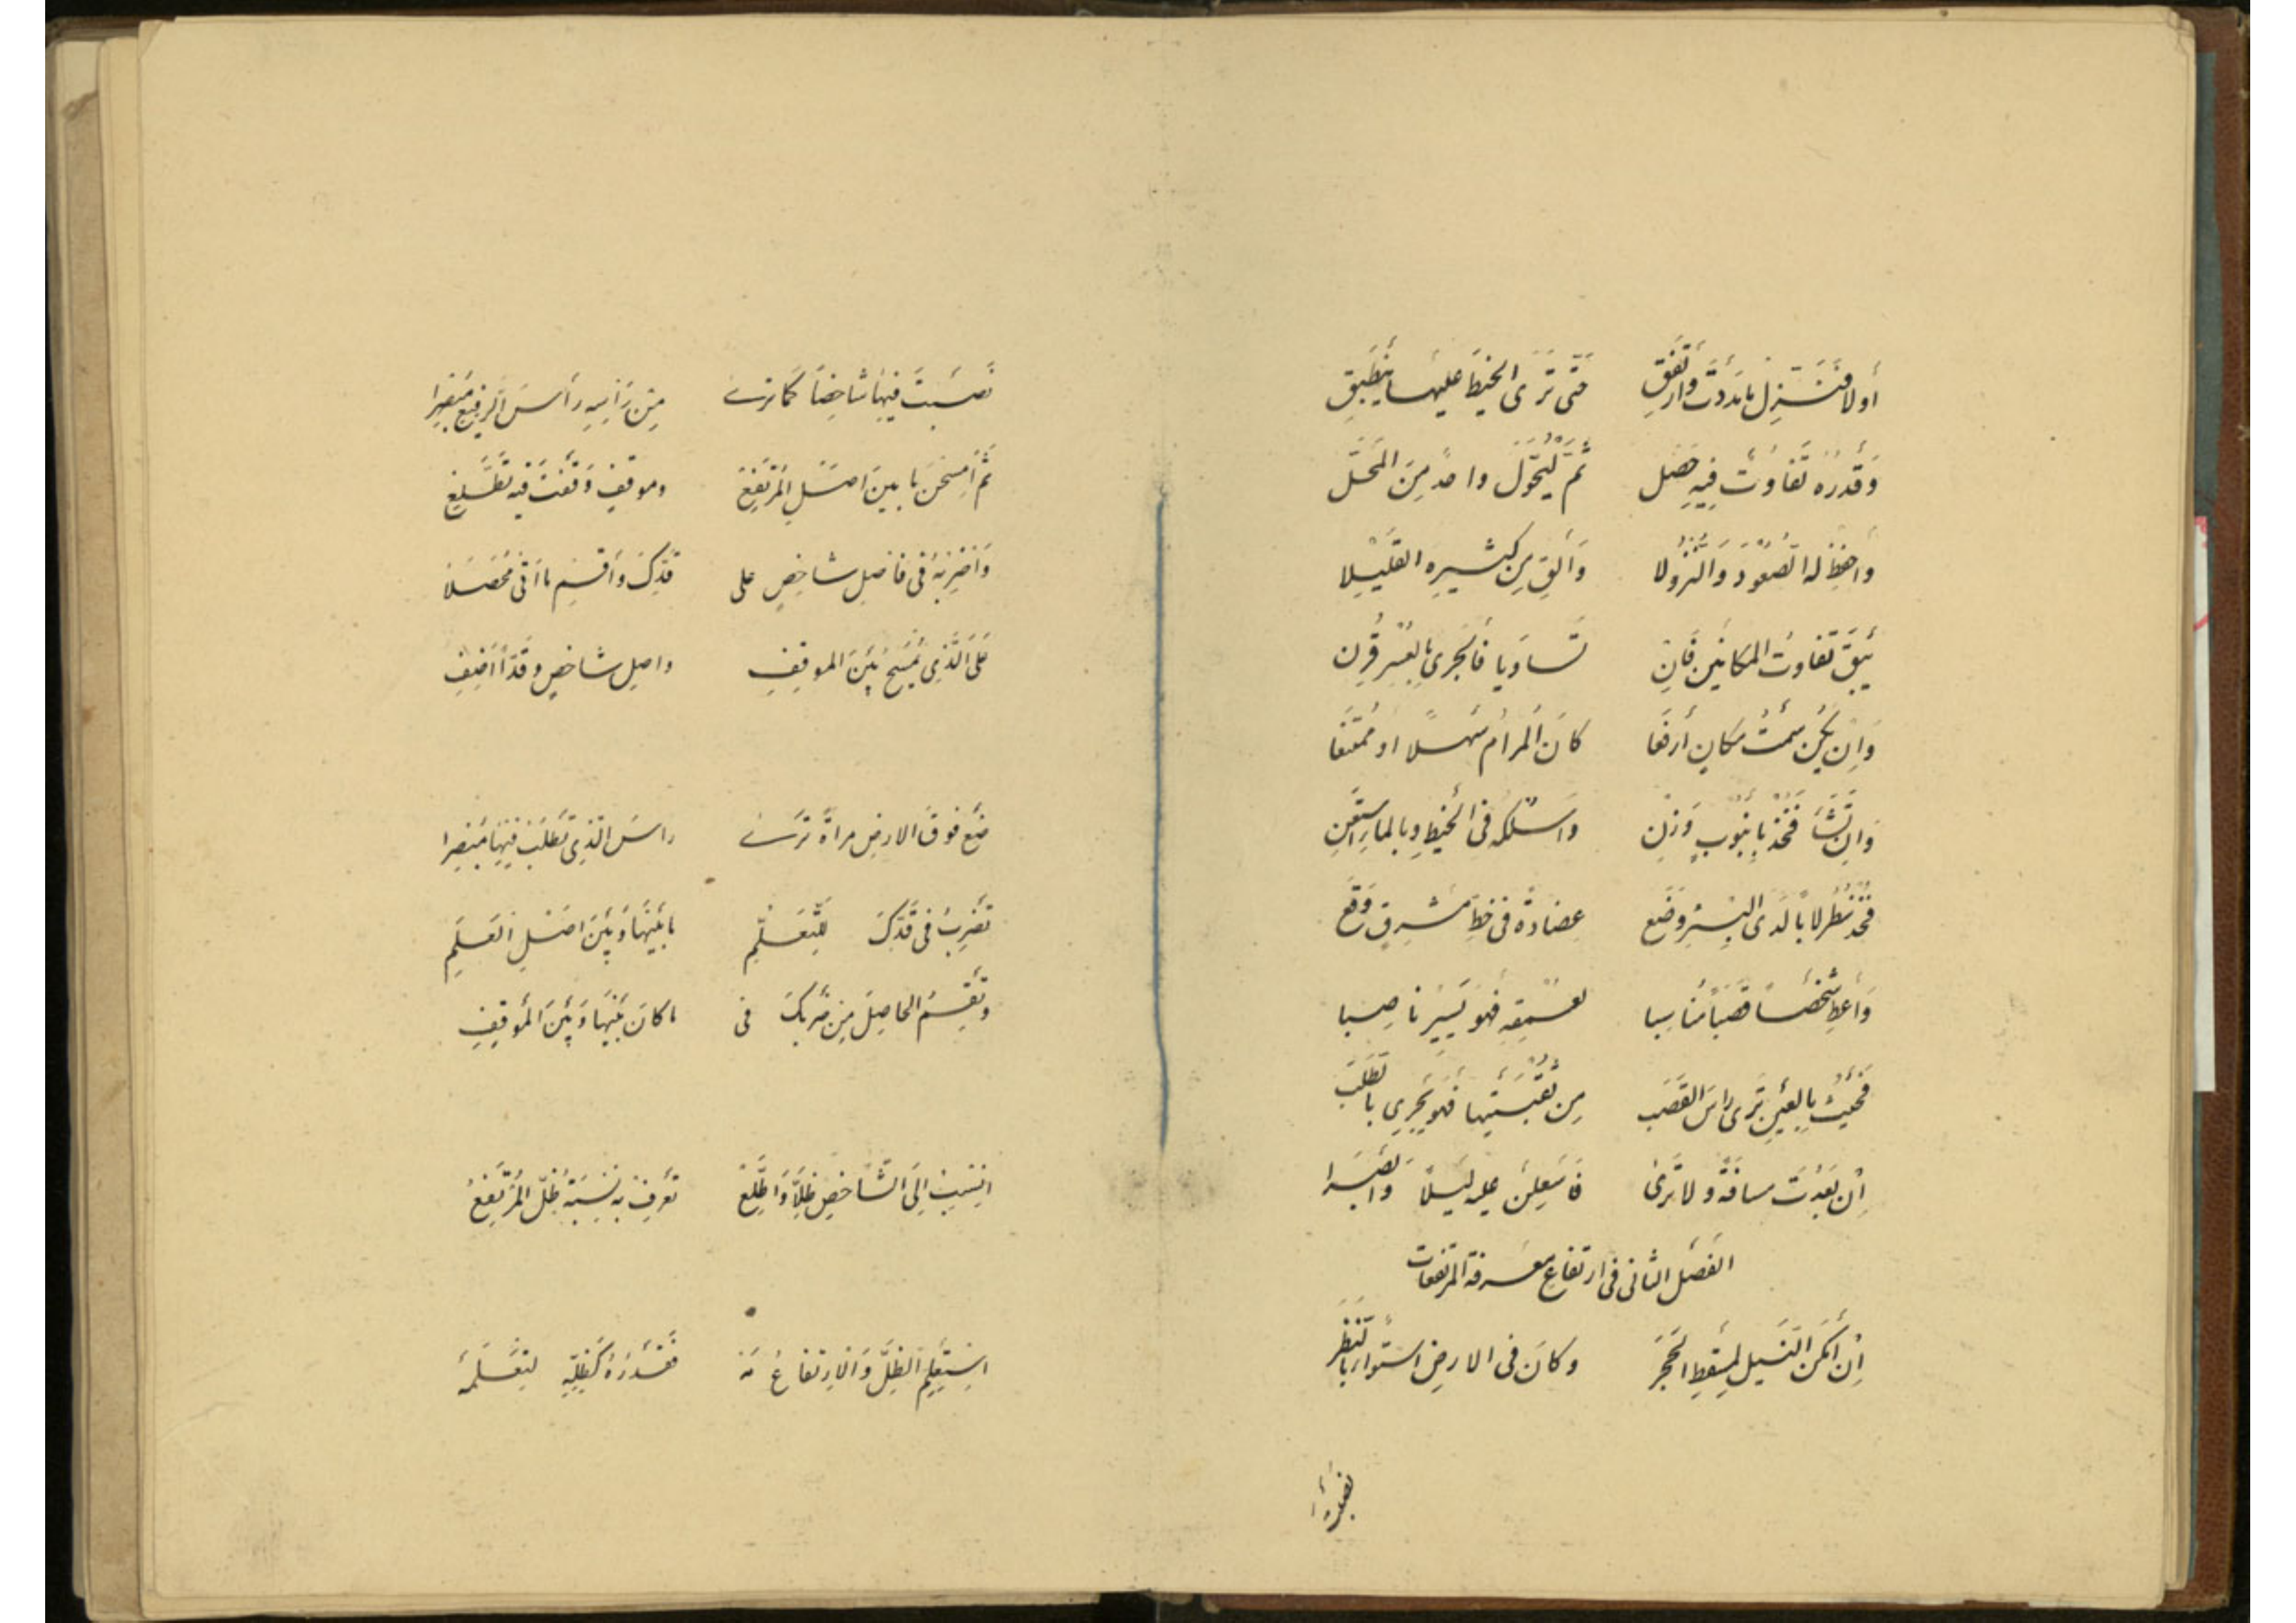 أولا فنزل ما بدت وارتفق حتى ترى الخيط عليها ينطبق
وقدره تفاوت فيه حصل ثم ليحول واحد من المحل
واحفظ له الصعود والنزولا وألق من كثيره القليلا
يبق تفاوت المكانين فإن تساويا فالجري بالعسر قرن
وإن يكن سمت مكان أرفعا كان المرام سهلا او ممتنعا
وإن تشأ فخذ بأنبوب وزن واسلكه في الخيط وبالماء استعن
فخذ سطرلابا لدى البئر وضع عضادة في خط مشرق وقع
وأعط شخصا قصبا مناسبا لعمقه فهو يسير ناصبا
فحيث بالعين ترى راس القصب من ثقبتيها فهو يجري بالطلب
إن بعدت مسافة ولا ترى فاشعلن عليه ليلا وابصرا
الفصل الثاني في ارتفاع معرفة المرتفعات
إن أمكن النيل لمسقط الحجر وكان في الارض استواء بالنظر
نصبت فيها شاخصا كما ترى من رأسه رأس الرفيع مبصرا
ثم امسحن ما بين اصل المرتفع وموقف وقفت فيه تطلع
واضربه في فاضل شاخص على قدك وأقسم ما اتى محصلا
على الذي يمسح بين الموقف واصل شاخص وقدا أضف
ضع فوق الارض مراة ترى راس الذي تطلب فيها مبصرا
تضرب في قدك للتعلم ما بينها وبين اصل العلم
وتقسم الحاصل من ضربك في ما كان بينها وبين الموقف
انسب الى الشاخص ظلا واطلع تعرف به نسبة ظل المرتفع
استعلم الظل والارتفاع مه فقدره كظله لتعلمه